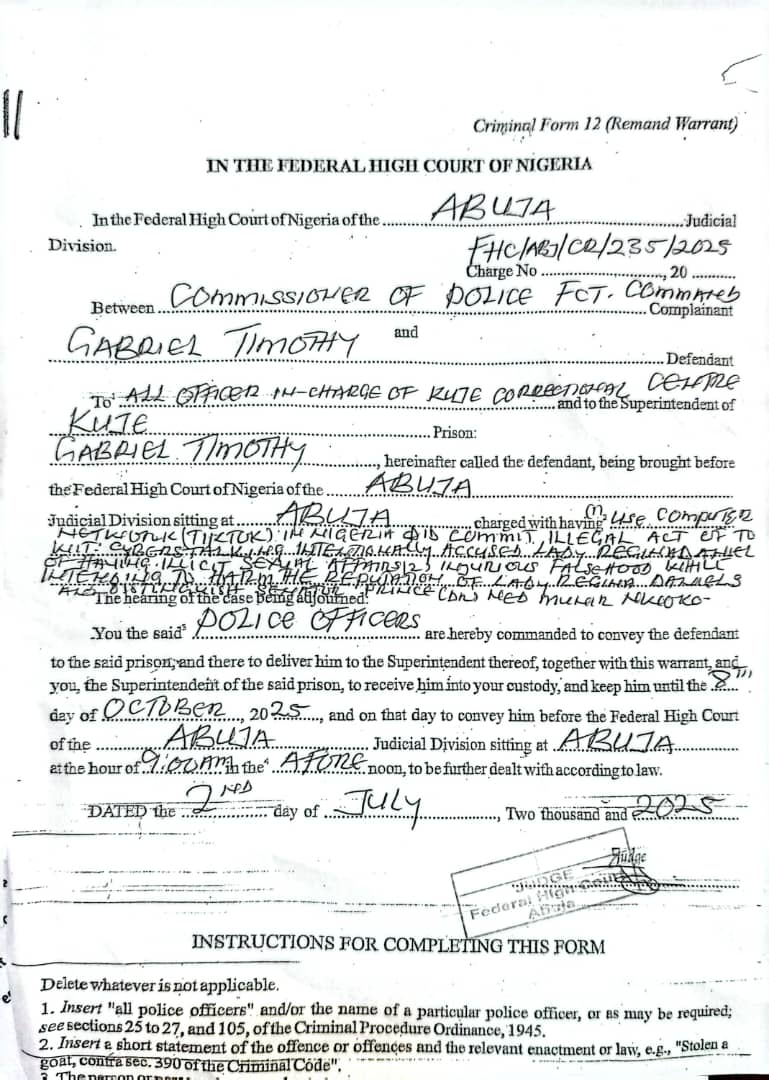 Criminal Form 12 (Remand Warrant)
IN THE FEDERAL HIGH COURT OF NIGERIA
In the Federal High Court of Nigeria of the ABUJA Judicial
Division.
FHC/ABJ/CR/235/2025
Charge No ...................., 20 ..........
Between COMMISSIONER OF POLICE FCT. COMMAND Complainant
and
GABRIEL TIMOTHY Defendant
To ALL OFFICER IN-CHARGE OF KUJE CORRECTIONAL CENTRE and to the Superintendent of
KUJE Prison:
GABRIEL TIMOTHY, hereinafter called the defendant, being brought before
the Federal High Court of Nigeria of the ABUJA
Judicial Division sitting at ABUJA charged with having (1) USE COMPUTER
NETWORK (TIKTOK) IN NIGERIA DID COMMIT ILLEGAL ACT OF TO
WIT: CYBERSTALKING INTENTIONALLY ACCUSED LADY REGINA DANIEL
OF HAVING ILLICIT SEXUAL AFFAIRS (2) INJURIOUS FALSEHOOD WHILE
INTENDING TO HARM THE REPUTATION OF LADY REGINA DANIELS
AND DISTINGUISH SENATOR PRINCE (DR) NED MUNIR NWOKO-
The hearing of the case being adjourned:
You the said⁵ POLICE OFFICERS are hereby commanded to convey the defendant
to the said prison, and there to deliver him to the Superintendent thereof, together with this warrant, and
you, the Superintendent of the said prison, to receive him into your custody, and keep him until the 8TH
day of OCTOBER, 2025, and on that day to convey him before the Federal High Court
of the ABUJA Judicial Division sitting at ABUJA
at the hour of 9:00AM in the⁶ AFORE noon, to be further dealt with according to law.
DATED the 2ND day of JULY, Two thousand and 2025
Judge
JUDGE
Federal High Court
Abuja
INSTRUCTIONS FOR COMPLETING THIS FORM
Delete whatever is not applicable.
1. Insert "all police officers" and/or the name of a particular police officer, or as may be required;
see sections 25 to 27, and 105, of the Criminal Procedure Ordinance, 1945.
2. Insert a short statement of the offence or offences and the relevant enactment or law, e.g., "Stolen a
goat, contra sec. 390 of the Criminal Code".
3. The person or